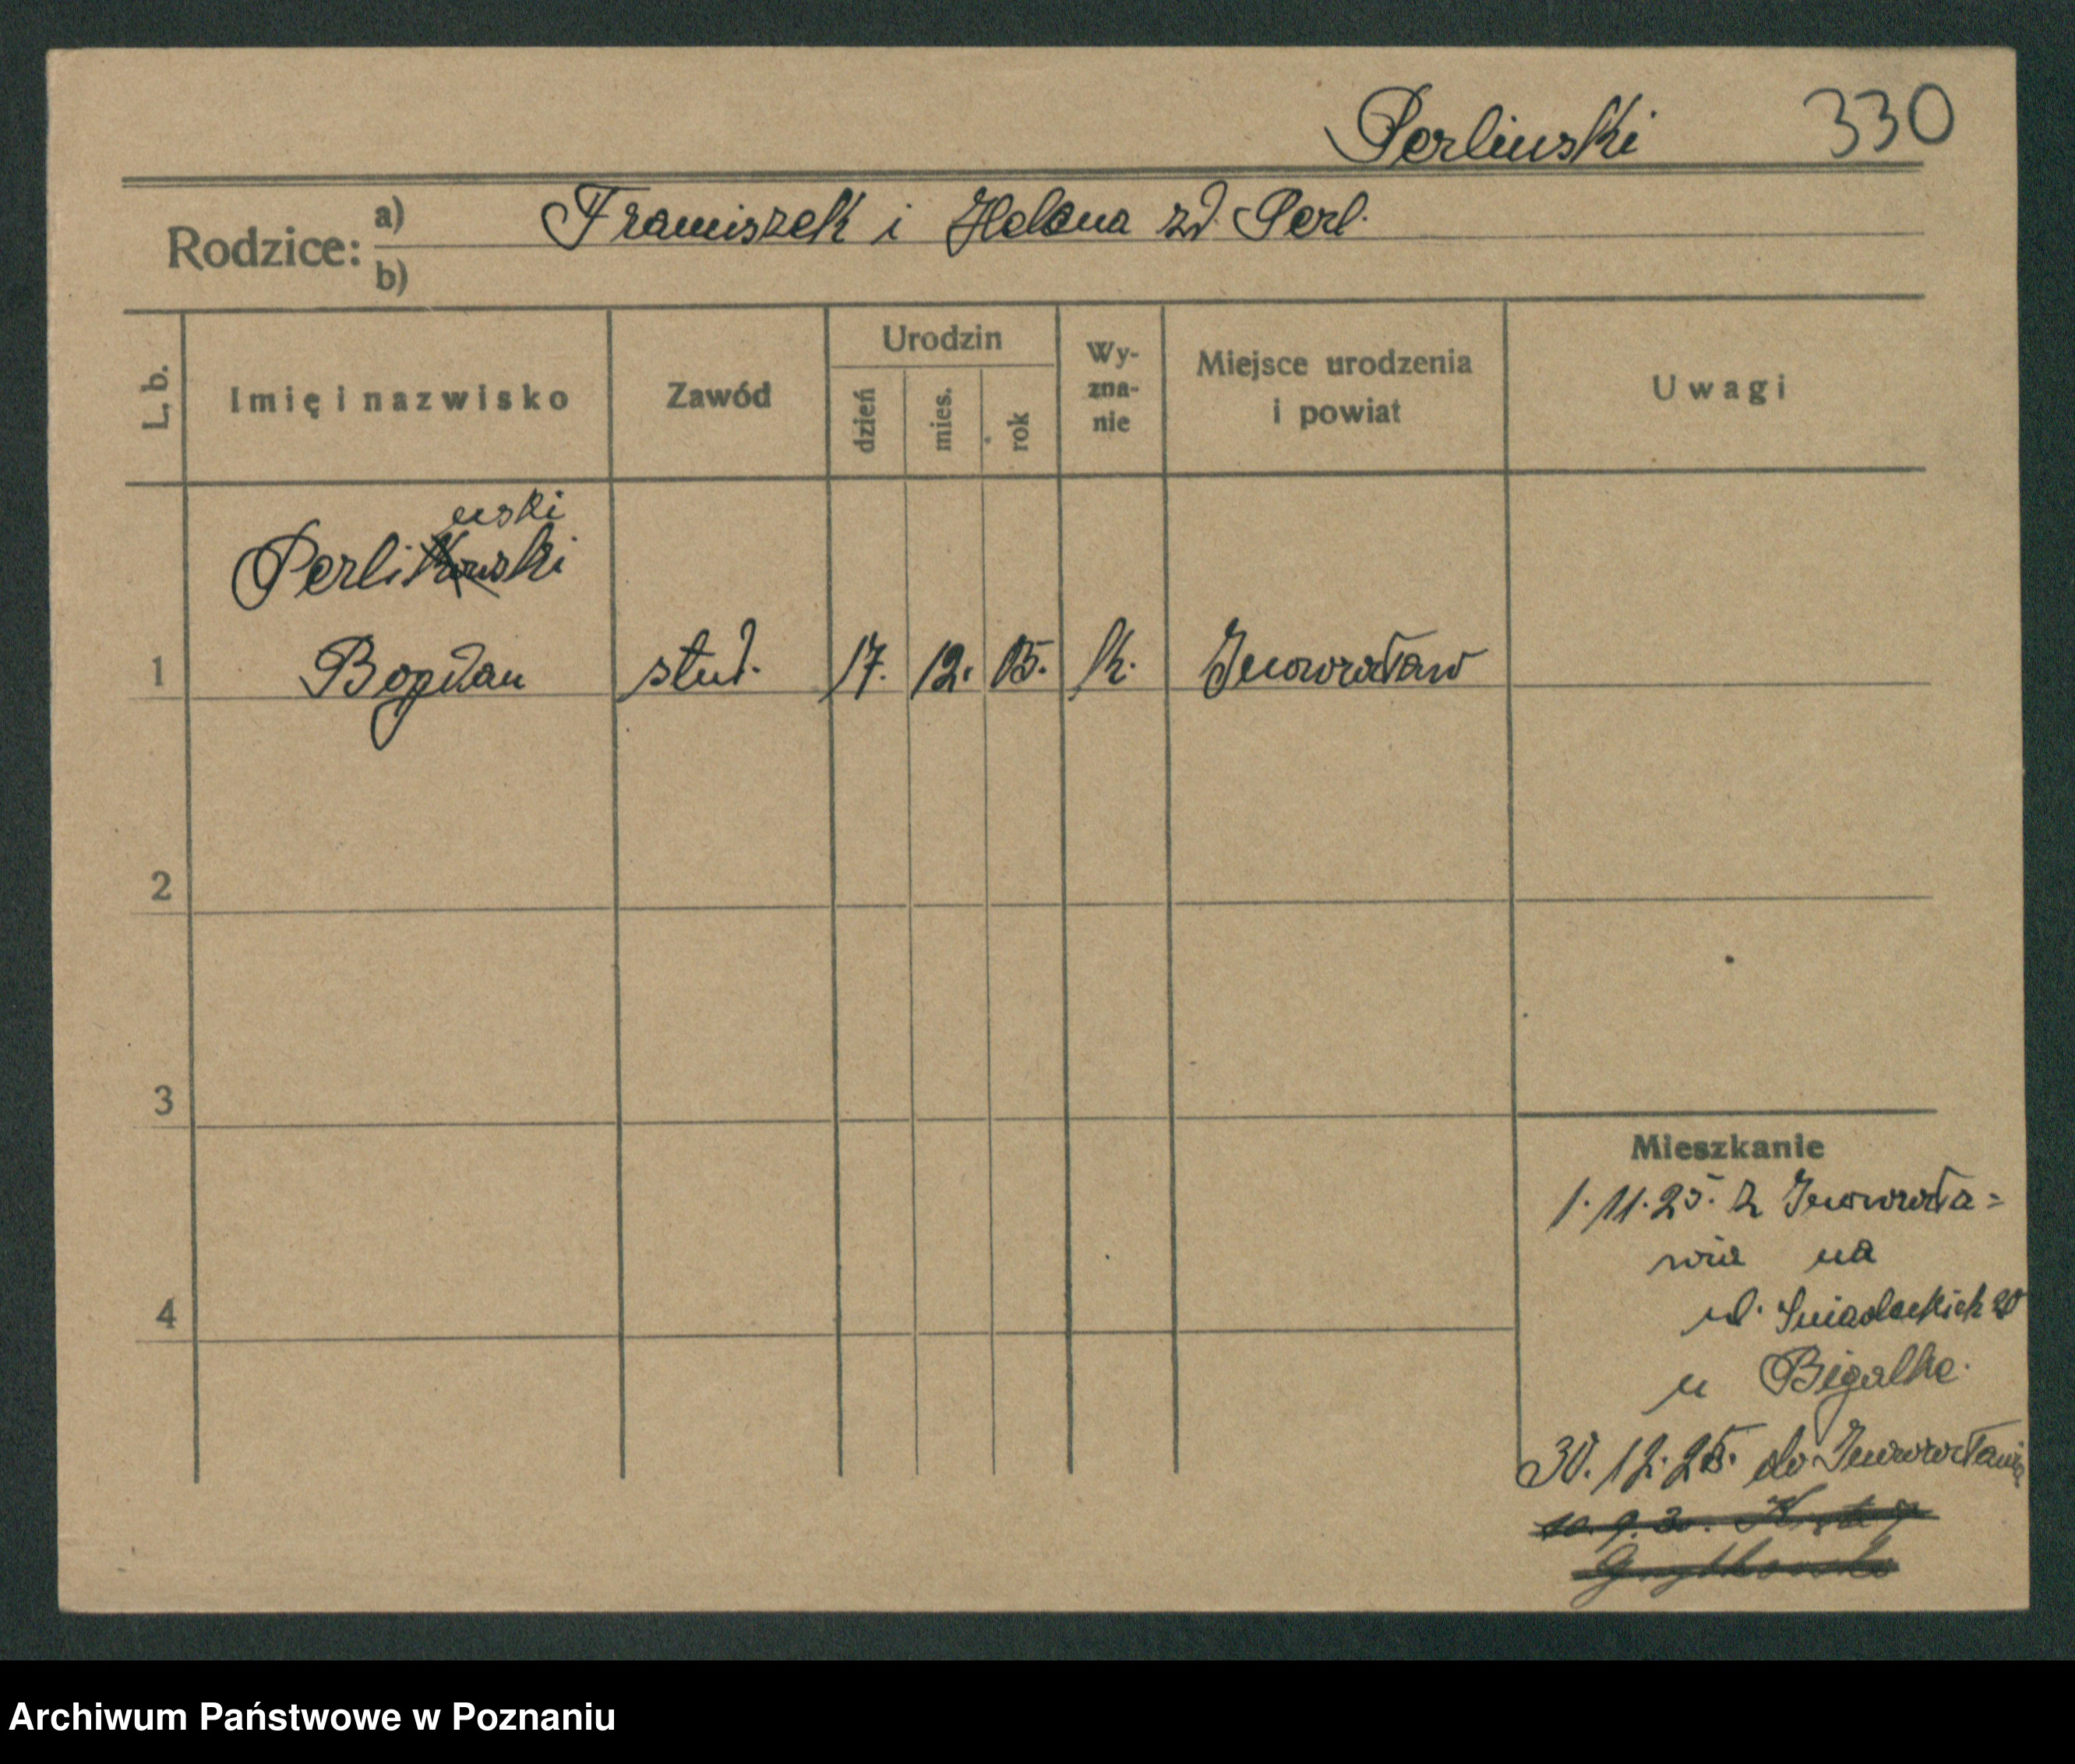 Perlinski 330
Rodzice: a) Franciszek i Helena zd. Perl.
b)
L. b. Imię i nazwisko Zawód Urodzin dzień mies. rok Wy-zna-nie Miejsce urodzenia i powiat Uwagi
nski
Perlikowski
1 Bogdan stud. 17. 12. 05. k. Inowrocław
2
3
Mieszkanie
1.11.25. z Inowrocła=
wia na
4
ul. Śniadeckich 20
u Bigalke.
30.12.25. do Inowrocławia
Archiwum Państwowe w Poznaniu